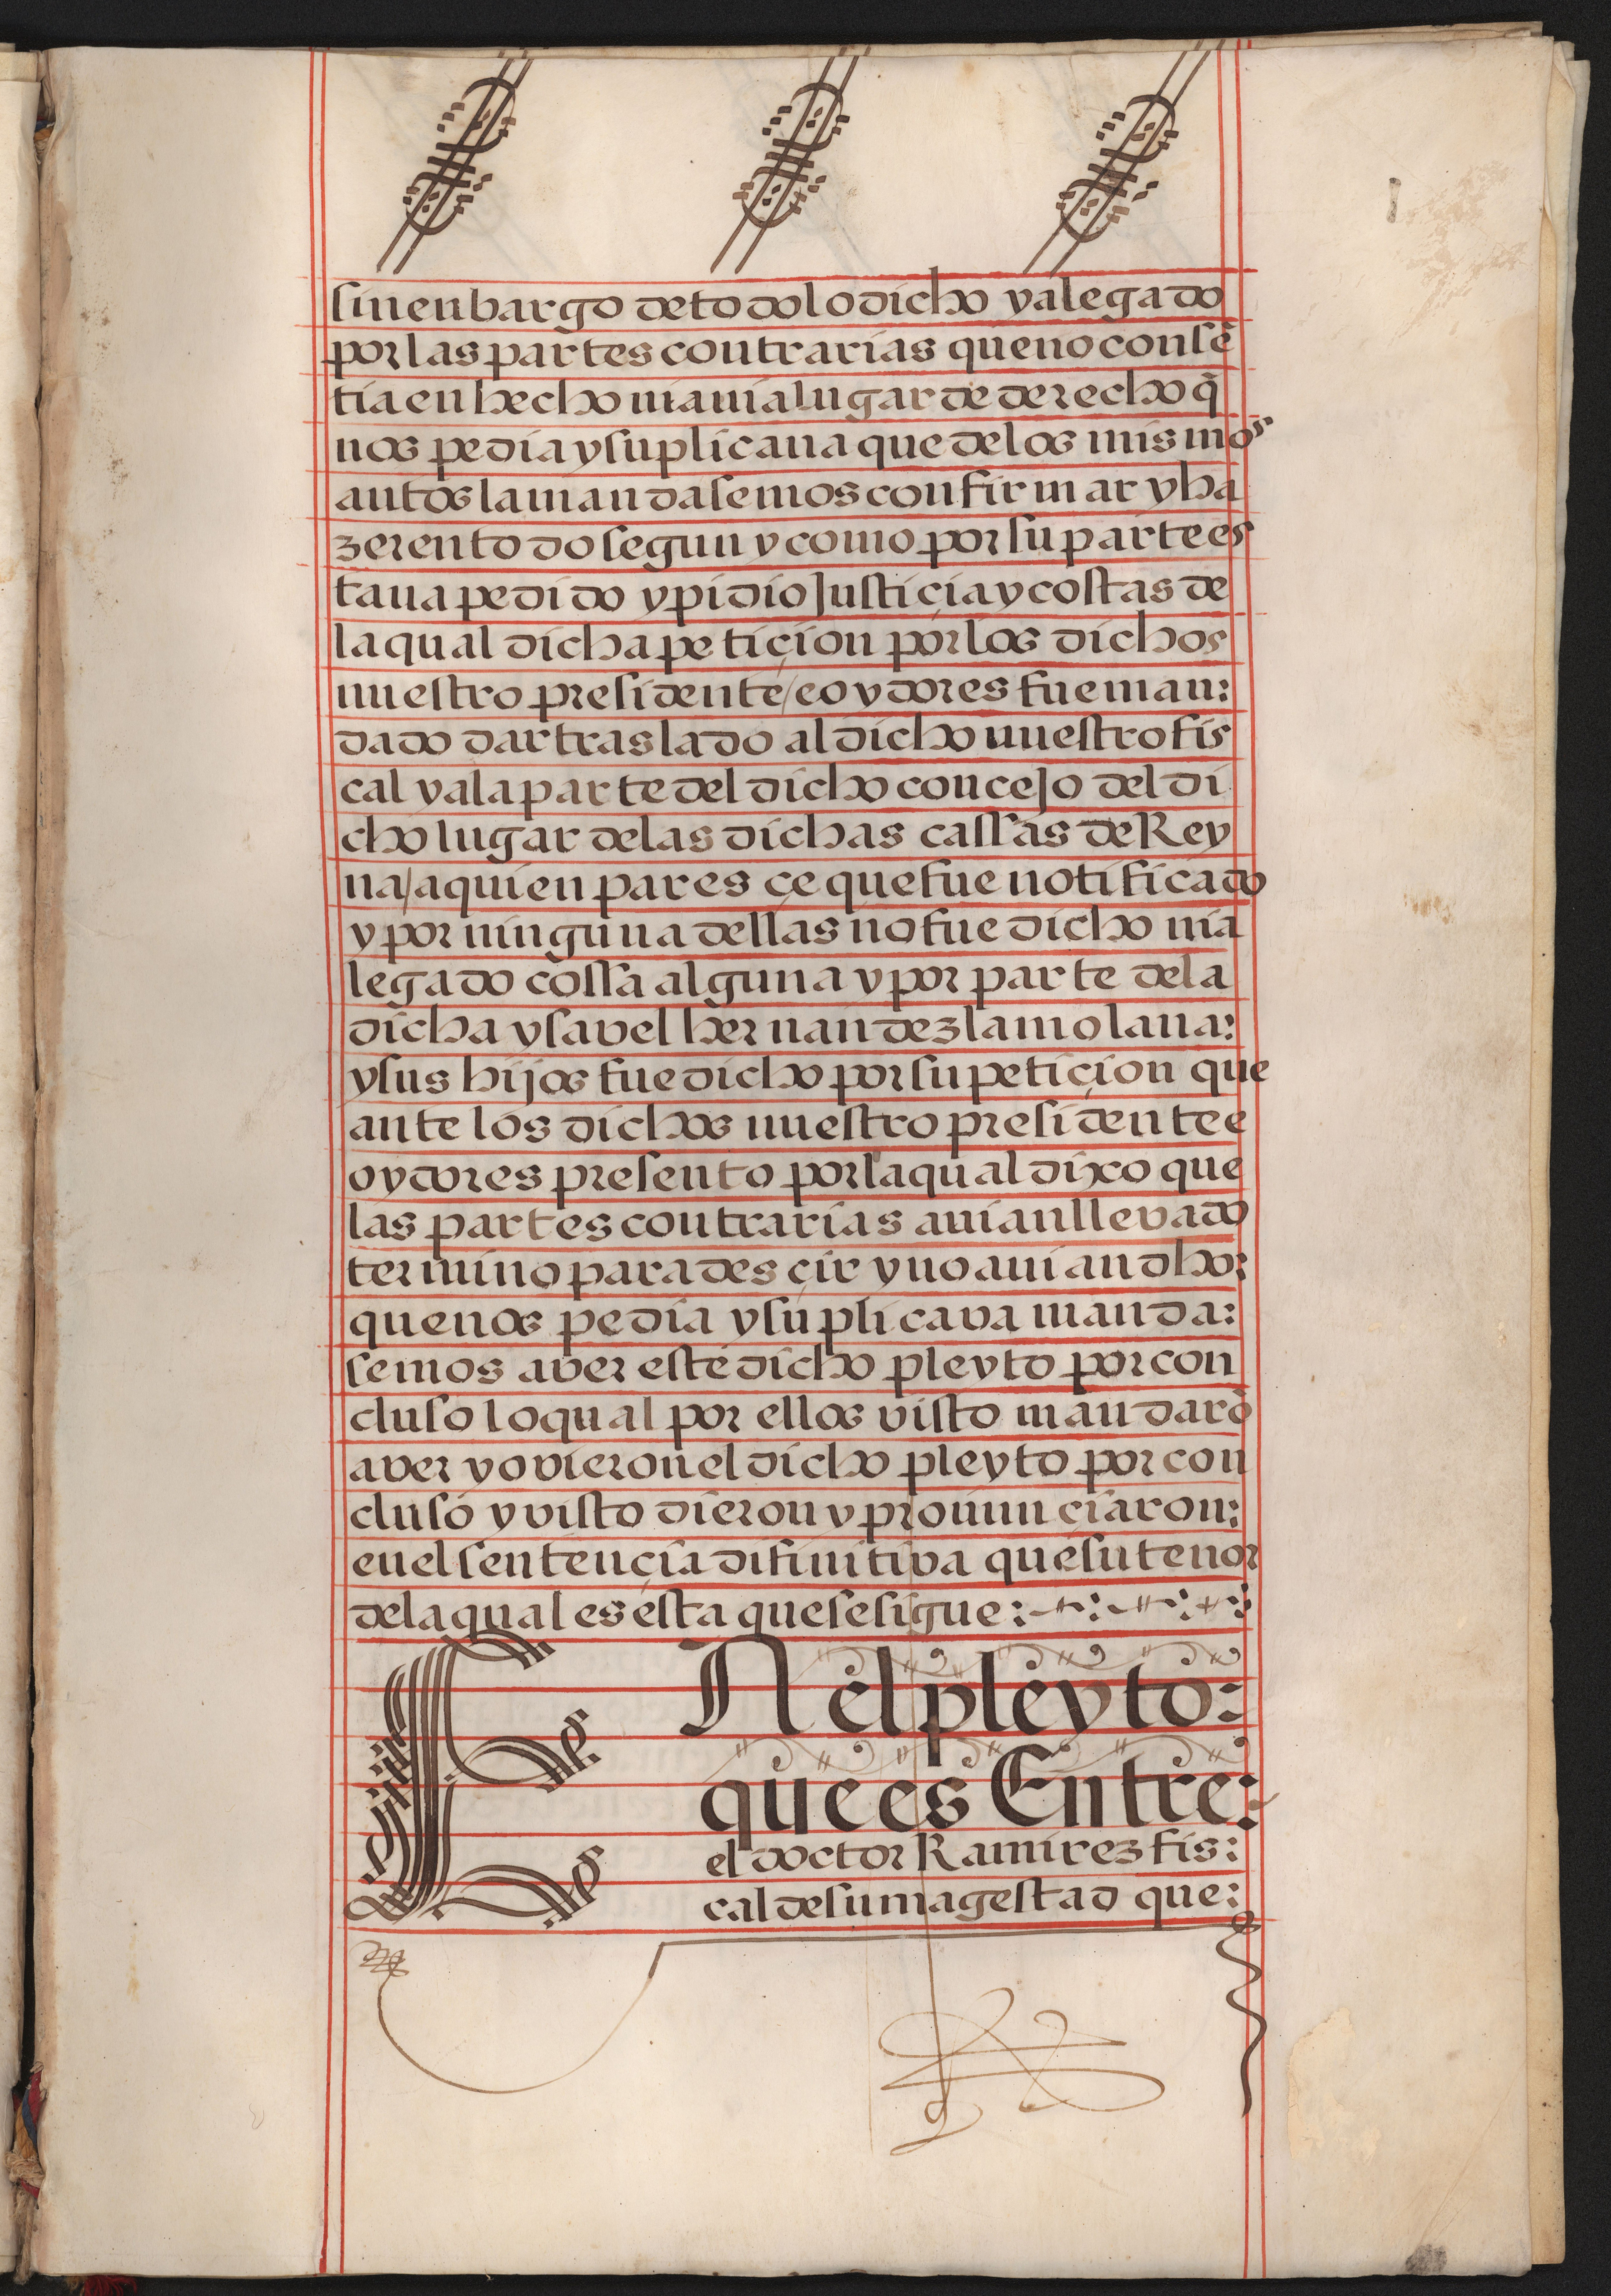 sin enbargo de todo lo dicho y alegado
por las partes contrarias que no consē
tia en hecho ni avia lugar de derecho q̄
nos pedia y suplicaua que de los mismos
autos la mandasemos confirmar y ha
zer en todo segun y como por su parte es
taua pedido y pidio Justiçia y costas de
la qual dicha petiçion por los dichos
nuestro presidente / e oydores fue man:
dado dar traslado al dicho nuestro fis
cal y a la parte del dicho concejo del di
cho lugar de las dichas cassas de Rey
na / a quien paresçe que fue notificado
y por ninguna dellas no fue dicho ni a
legado cossa alguna y por parte de la
dicha ysavel hernandez la molana:
y sus hijos fue dicho por su petiçion que
ante los dichos nuestro presidente e
oydores presento por la qual dixo que
las partes contrarias auian llevado
termino para desçir y no auian dho:
que nos pedia y suplicava manda:
semos aver este dicho pleyto por con
cluso lo qual por ellos visto mandarō
aver y ovieron el dicho pleyto por con
cluso y visto dieron y pronunçiaron:
en el sentençia difinitiva que su tenor
de la qual es esta que se sigue:
EN el pleyto:
que es Entre:
el doctor Ramirez fis:
cal de su magestad que: